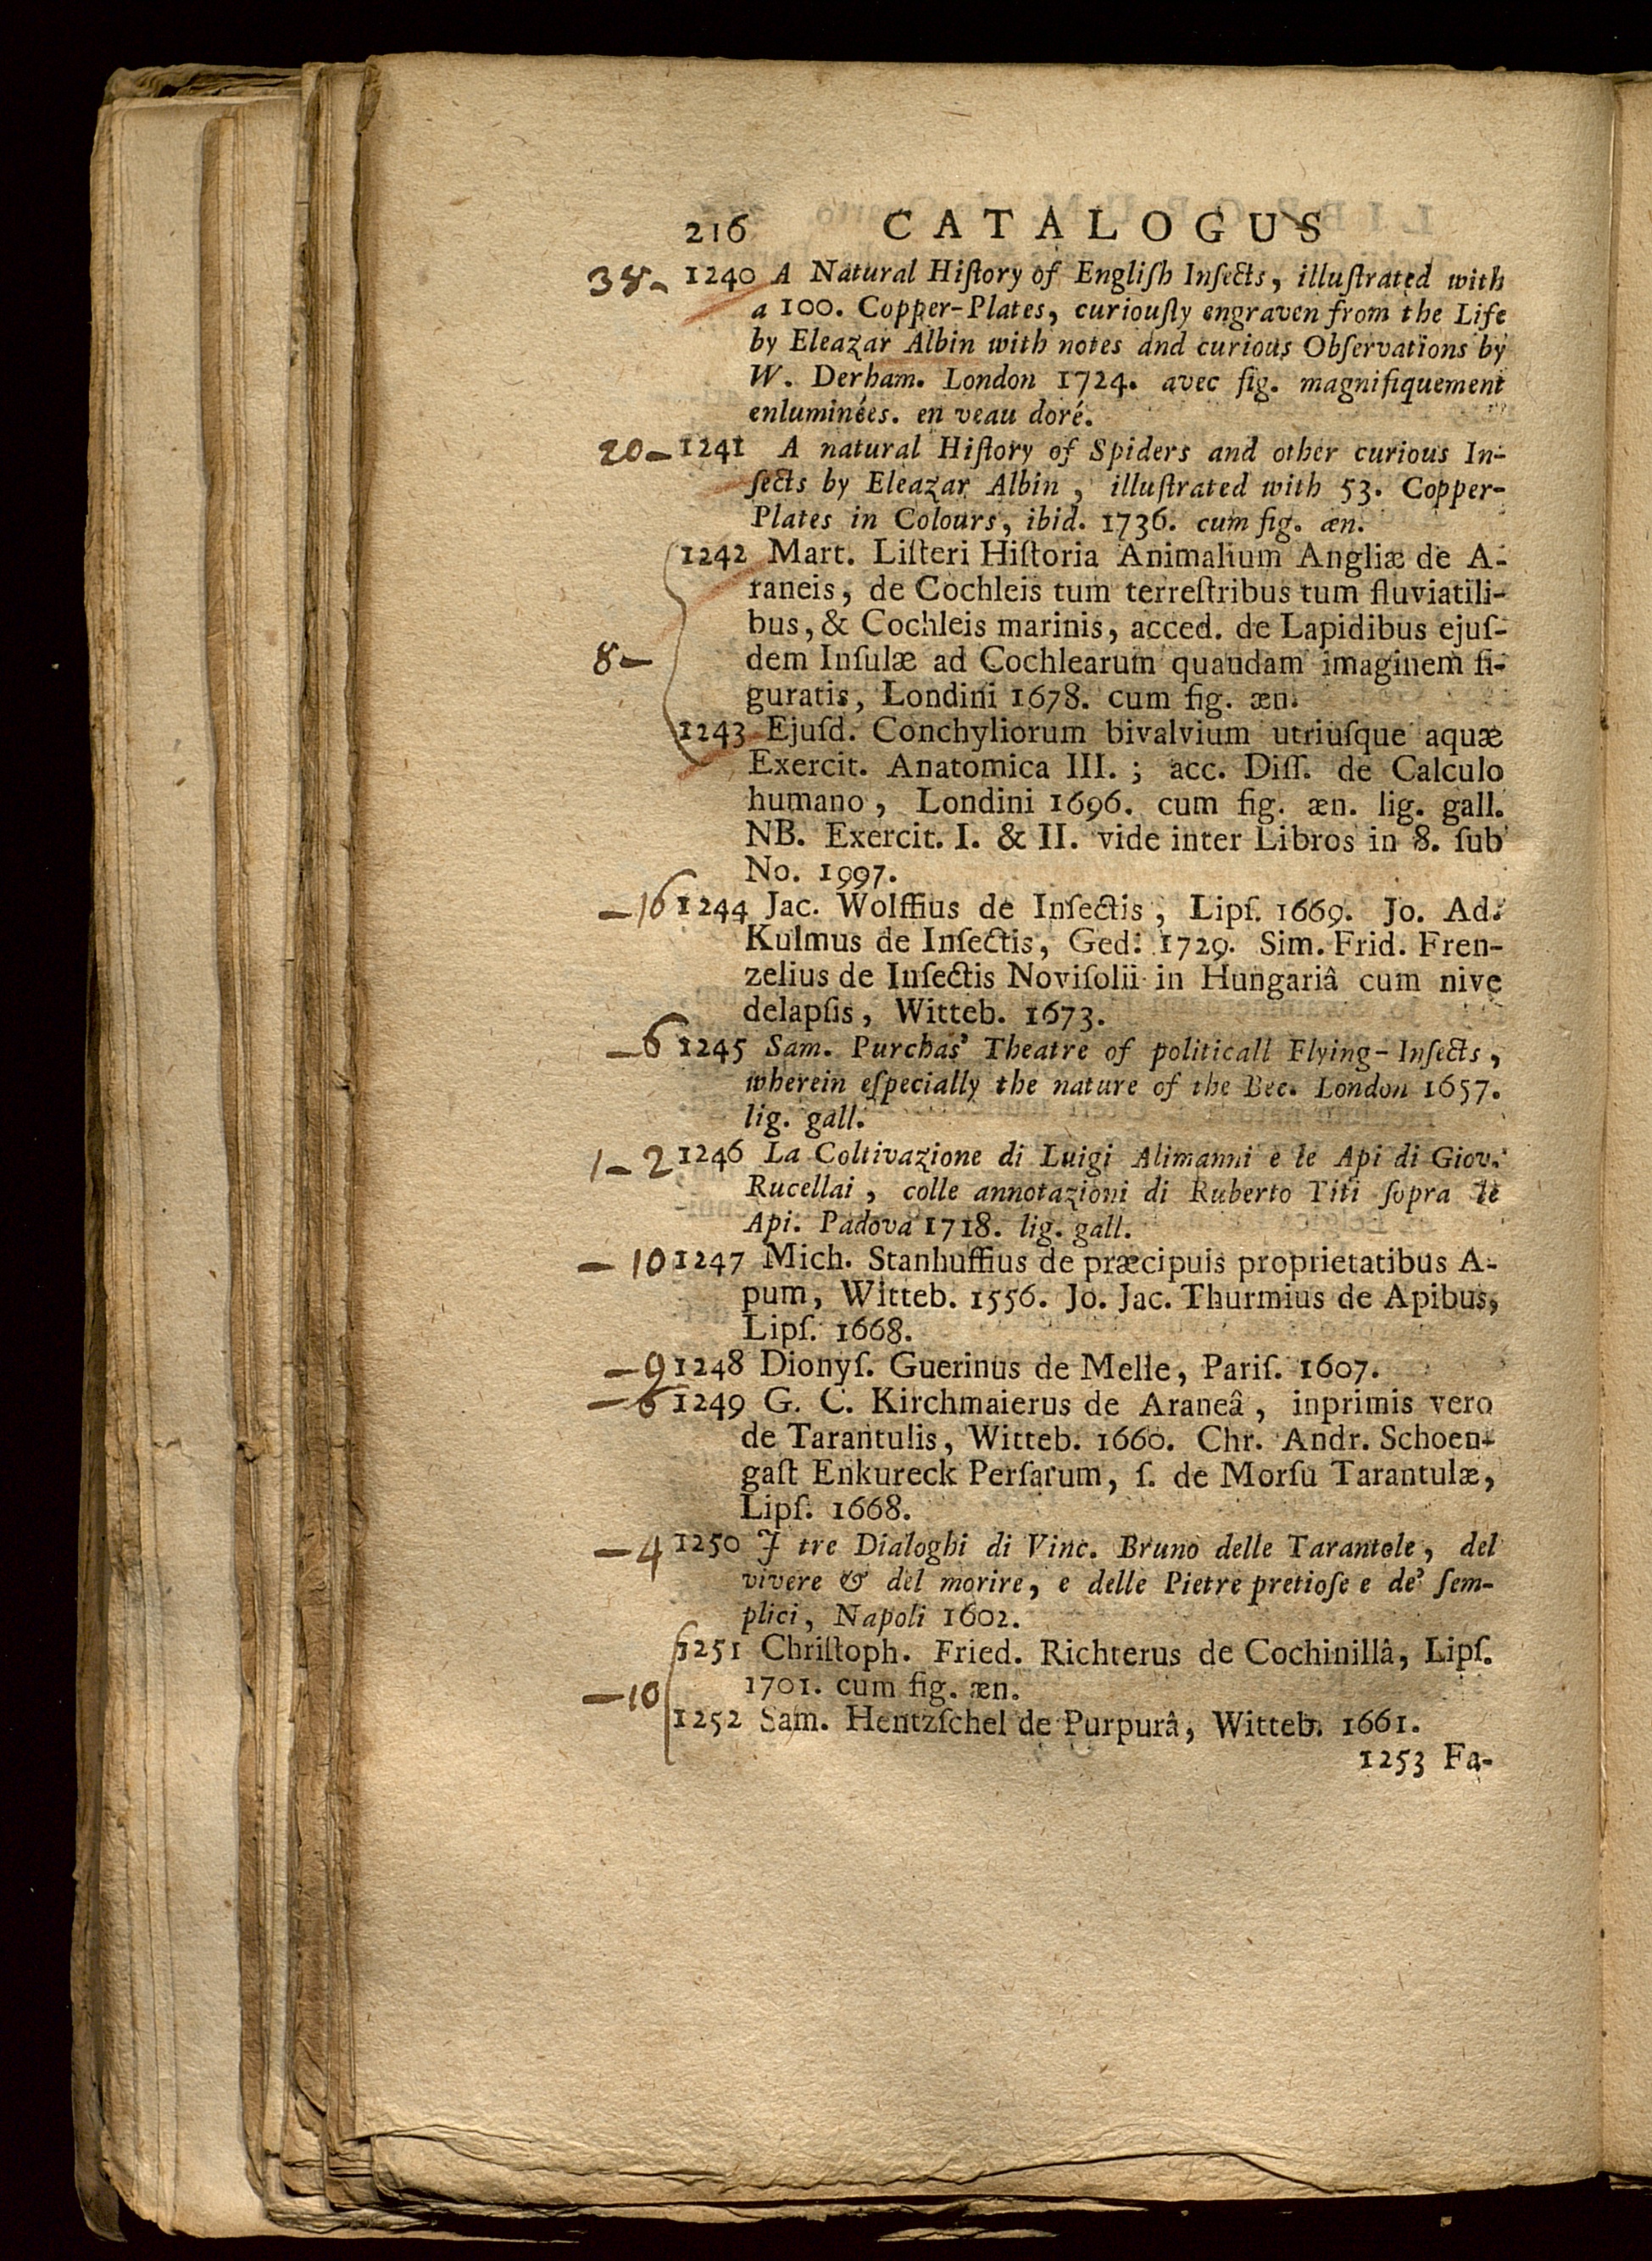 216 CATALOGUS
38- 1240 A Natural Hiſtory of Engliſh Inſects, illuſtrated with
a 100. Copper-Plates, curiouſly engraven from the Life
by Eleazar Albin with notes and curious Obſervations by
W. Derham. London 1724. avec fig. magnifiquement
enluminées. en veau doré.
20- 1241 A natural Hiſtory of Spiders and other curious In-
ſects by Eleazar Albin, illuſtrated with 53. Copper-
Plates in Colours, ibid. 1736. cum fig. æn.
1242 Mart. Liſteri Hiſtoria Animalium Angliæ de A-
raneis, de Cochleis tum terreſtribus tum fluviatili-
bus, & Cochleis marinis, acced. de Lapidibus ejuſ-
8- dem Inſulæ ad Cochlearum quandam imaginem fi-
guratis, Londini 1678. cum fig. æn.
1243 Ejuſd. Conchyliorum bivalvium utriuſque aquæ
Exercit. Anatomica III.; acc. Diſſ. de Calculo
humano, Londini 1696. cum fig. æn. lig. gall.
NB. Exercit. I. & II. vide inter Libros in 8. ſub
No. 1997.
-16 1244 Jac. Wolffius de Inſectis, Lipſ. 1669. Jo. Ad.
Kulmus de Inſectis, Ged. 1729. Sim. Frid. Fren-
zelius de Inſectis Noviſolii in Hungariâ cum nive
delapſis, Witteb. 1673.
-6 1245 Sam. Purchas' Theatre of politicall Flying-Inſects,
wherein eſpecially the nature of the Bee. London 1657.
lig. gall.
1-2 1246 La Coltivazione di Luigi Alimanni e le Api di Giov.
Rucellai, colle annotazioni di Ruberto Titi ſopra le
Api. Padova 1718. lig. gall.
-10 1247 Mich. Stanhuffius de præcipuis proprietatibus A-
pum, Witteb. 1556. Jo. Jac. Thurmius de Apibus,
Lipſ. 1668.
-9 1248 Dionyſ. Guerinus de Melle, Pariſ. 1607.
-6 1249 G. C. Kirchmaierus de Araneâ, inprimis vero
de Tarantulis, Witteb. 1660. Chr. Andr. Schoen-
gaſt Enkureck Perſarum, ſ. de Morſu Tarantulæ,
Lipſ. 1668.
-4 1250 I tre Dialoghi di Vinc. Bruno delle Tarantole, del
vivere & del morire, e delle Pietre pretioſe e de' ſem-
plici, Napoli 1602.
1251 Chriſtoph. Fried. Richterus de Cochinillâ, Lipſ.
-10 1701. cum fig. æn.
1252 Sam. Hentzſchel de Purpurâ, Witteb. 1661.
1253 Fa-